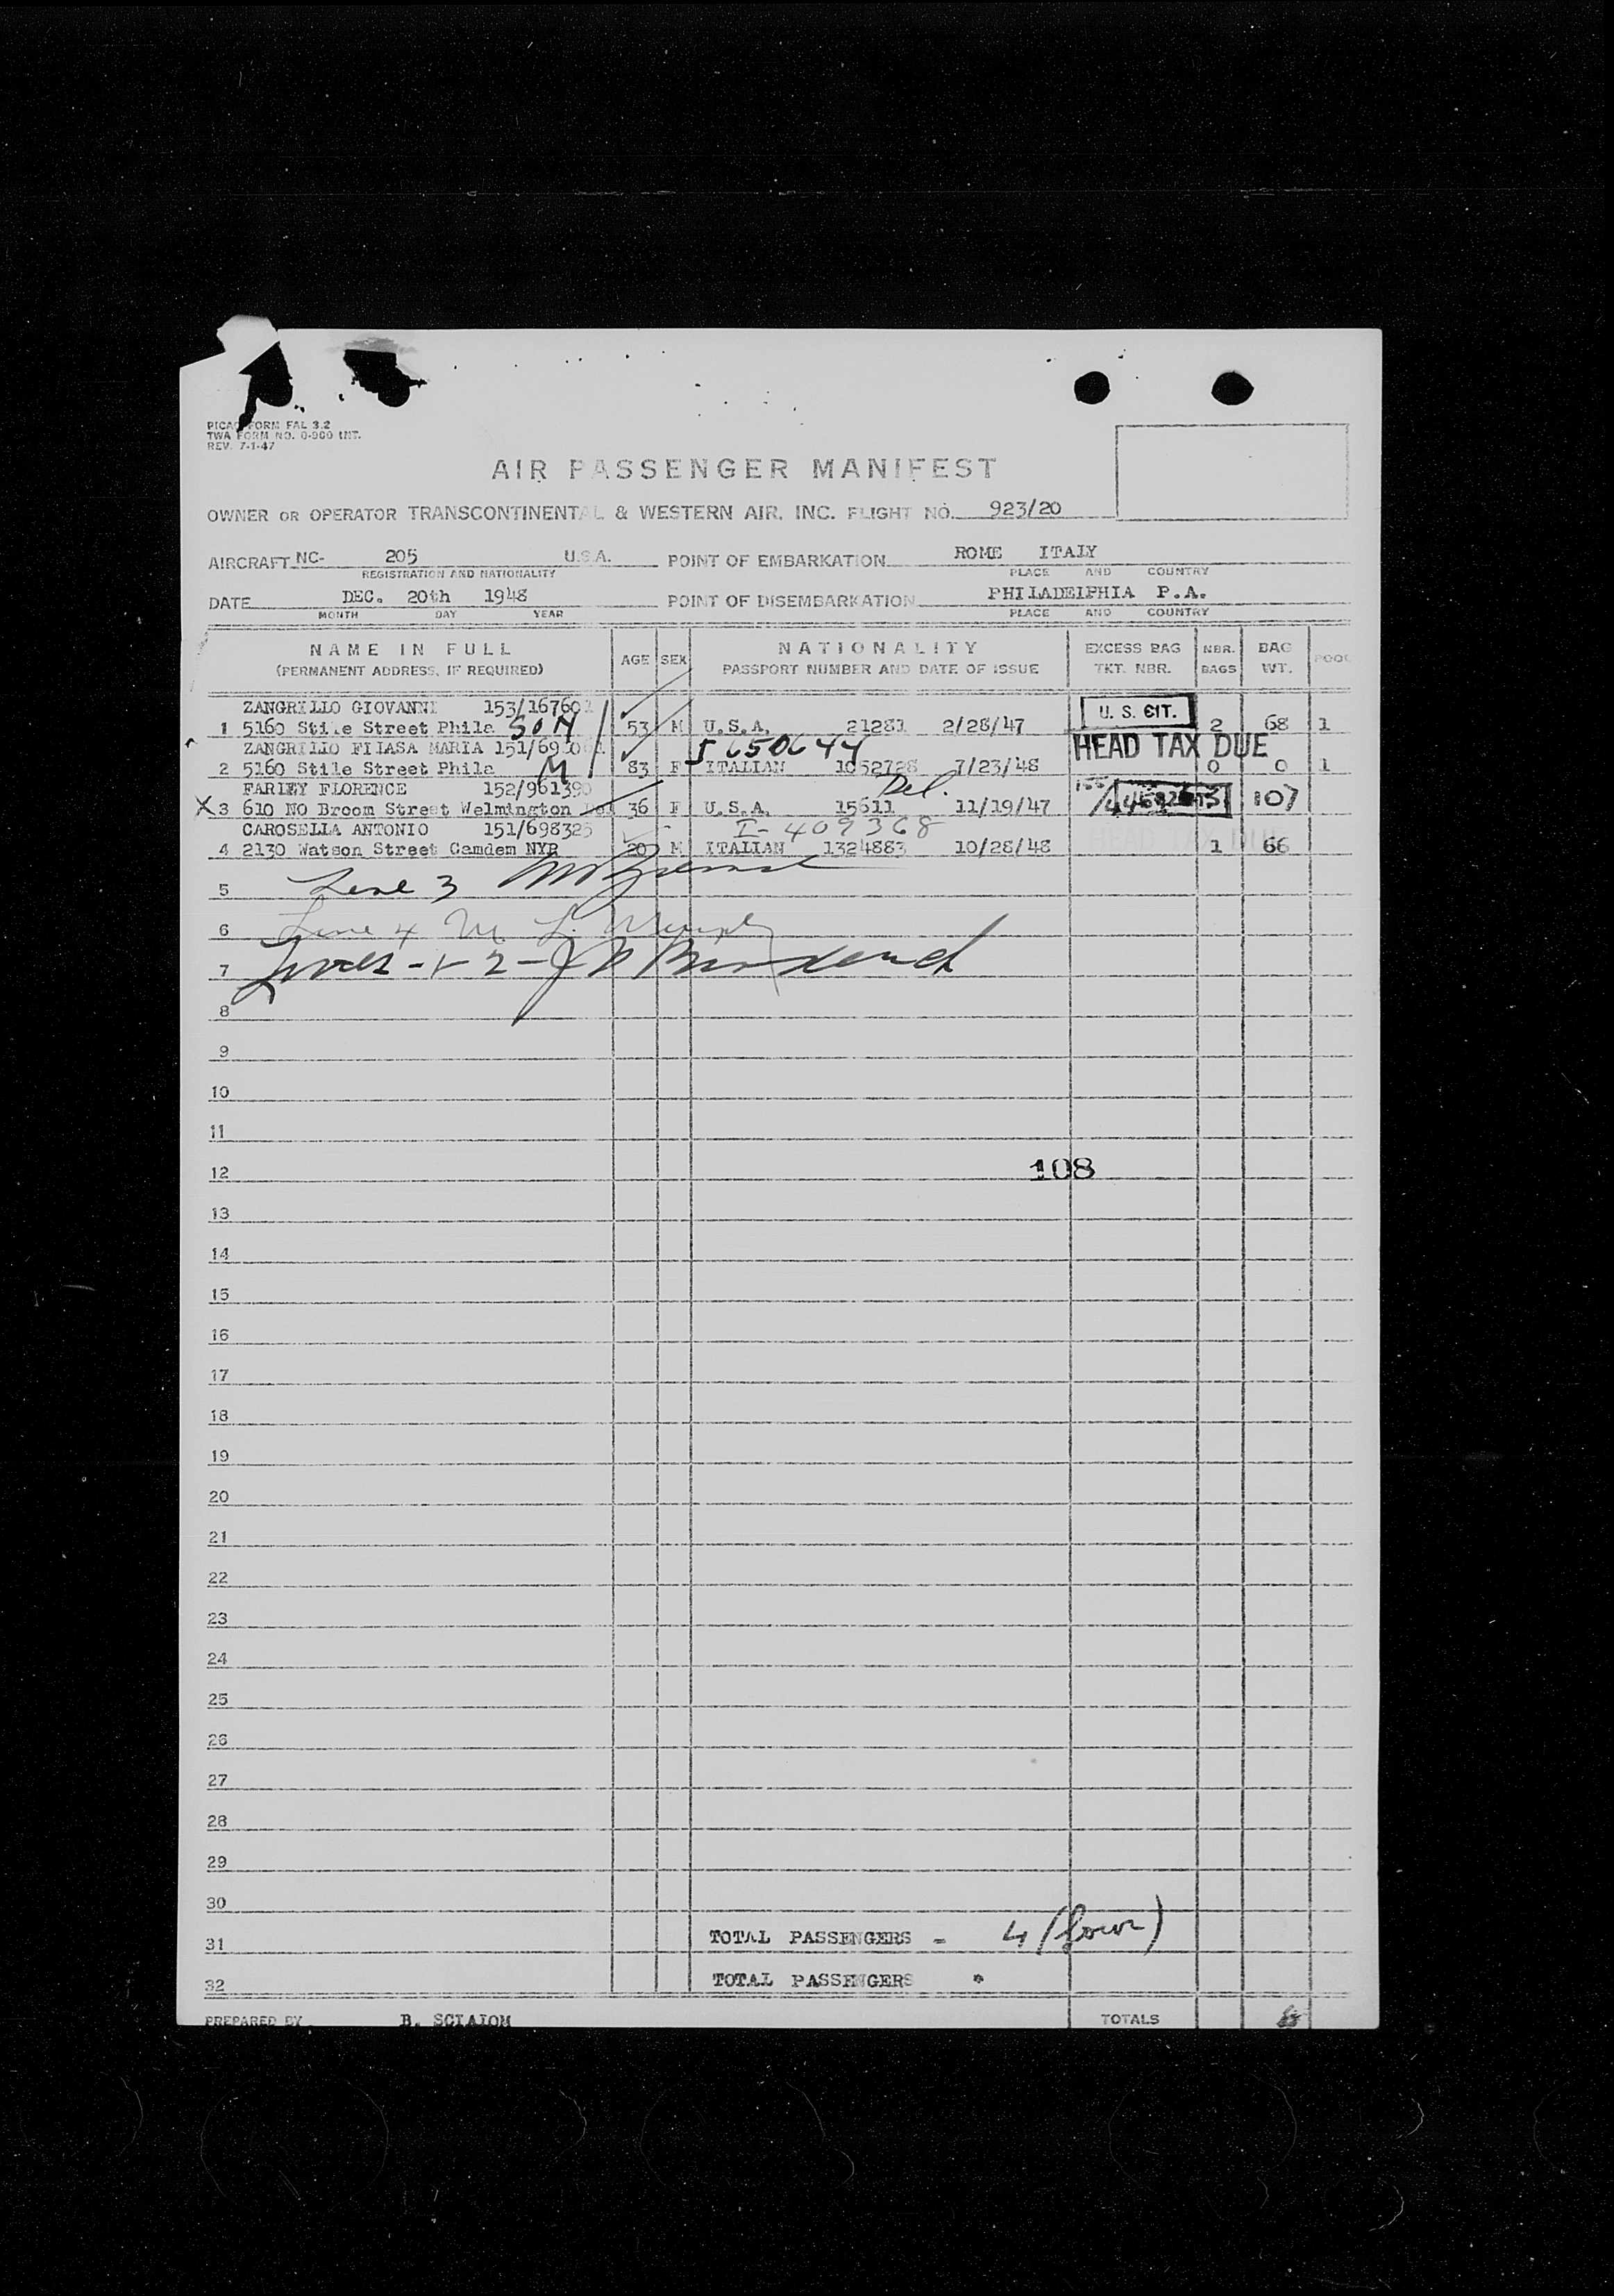 PICAO FORM FAL 3.2
TWA FORM NO. 0-900 INT.
REV. 7-1-47
AIR PASSENGER MANIFEST
OWNER OR OPERATOR TRANSCONTINENTAL & WESTERN AIR, INC. FLIGHT NO. 923/20
AIRCRAFT NC- 205 U.S.A. POINT OF EMBARKATION ROME ITALY
REGISTRATION AND NATIONALITY PLACE AND COUNTRY
DATE DEC. 20th 1948 POINT OF DISEMBARKATION PHILADELPHIA P.A.
MONTH DAY YEAR PLACE AND COUNTRY
NAME IN FULL AGE SEX NATIONALITY EXCESS BAG NBR. BAG POOL
(PERMANENT ADDRESS, IF REQUIRED) PASSPORT NUMBER AND DATE OF ISSUE TKT. NBR. BAGS WT.
ZANGRILLO GIOVANNI 153/167601 U. S. CIT.
1 5160 Stile Street Phila SON 53 M U.S.A. 21281 2/28/47 2 68 1
ZANGRILLO FILASA MARIA 5650644 HEAD TAX DUE
2 5160 Stile Street Phila M 83 F ITALIAN 1052728 7/23/48 0 0 1
FARLEY FLORENCE 152/961390 Del.
X 3 610 NO Broom Street Welmington Del 36 F U.S.A. 15611 11/19/47 107
CAROSELLA ANTONIO 151/698325 I-409368
4 2130 Watson Street Camdem NYR 20 M ITALIAN 1324883 10/28/48 HEAD TAX DUE 1 66
5 Line 3
6 Line 4 M. L. Murphy
7 Lines -1- 2-
8
9
10
11
12 108
13
14
15
16
17
18
19
20
21
22
23
24
25
26
27
28
29
30
31 TOTAL PASSENGERS - 4 (four)
32 TOTAL PASSENGERS *
PREPARED BY B. SCIALOM TOTALS